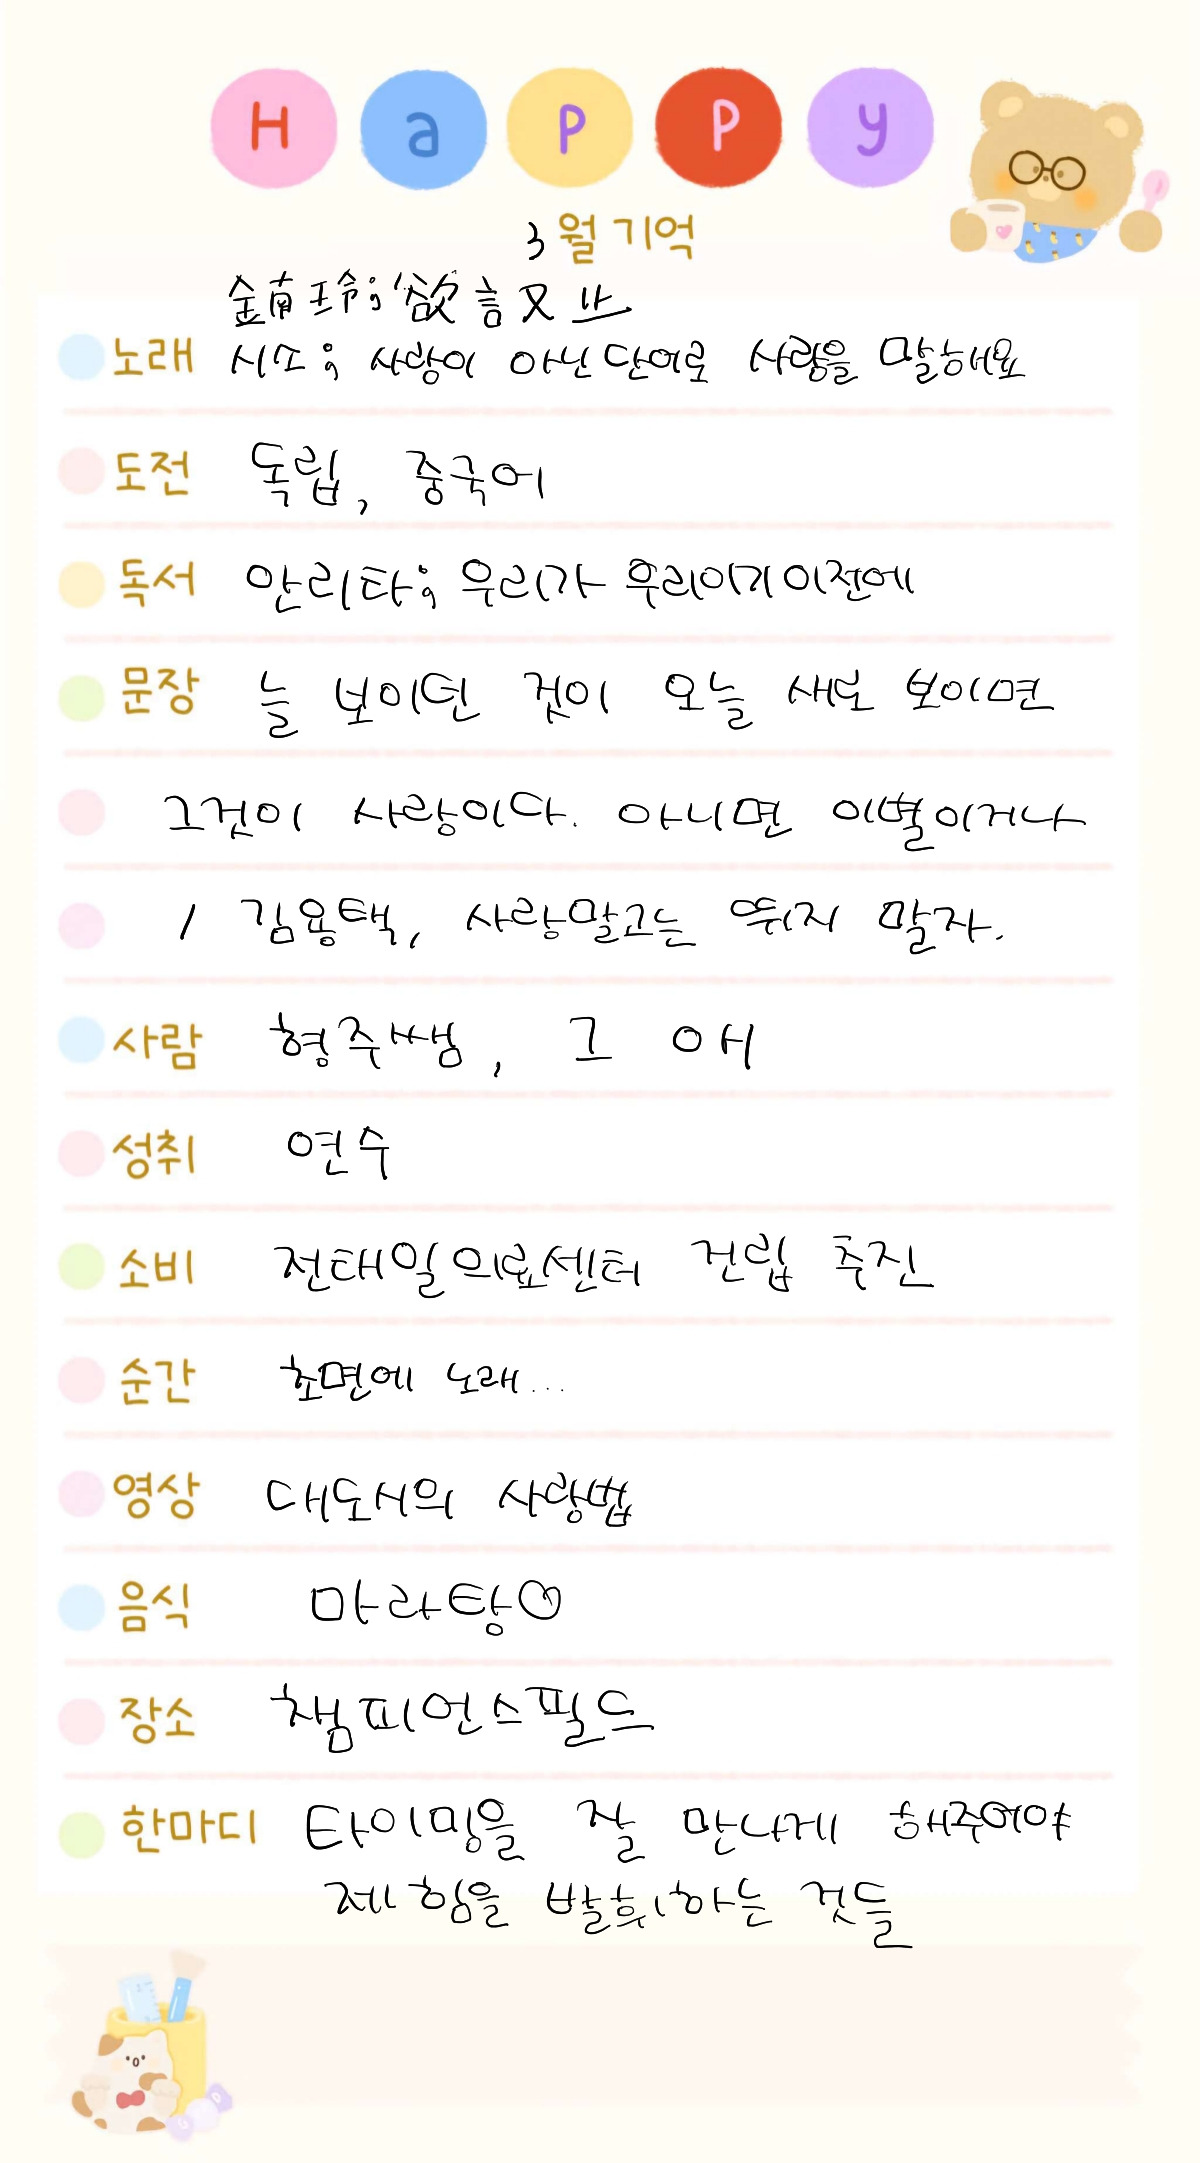 Happy
3월 기억
金南玲; '欲言又止
노래 시소; 사랑이 아닌 단어로 사랑을 말해요
도전 독립, 중국어
독서 안리타; 우리가 우리이기 이전에
문장 늘 보이던 것이 오늘 새로 보이면
그것이 사랑이다. 아니면 이별이거나
/ 김용택, 사랑말고는 뛰지 말자.
사람 형주쌤, 그 애
성취 연수
소비 전태일의료센터 건립 추진
순간 초면에 노래...
영상 대도시의 사랑법
음식 마라탕♡
장소 챔피언스필드
한마디 타이밍을 잘 만나게 해주어야
제 힘을 발휘하는 것들